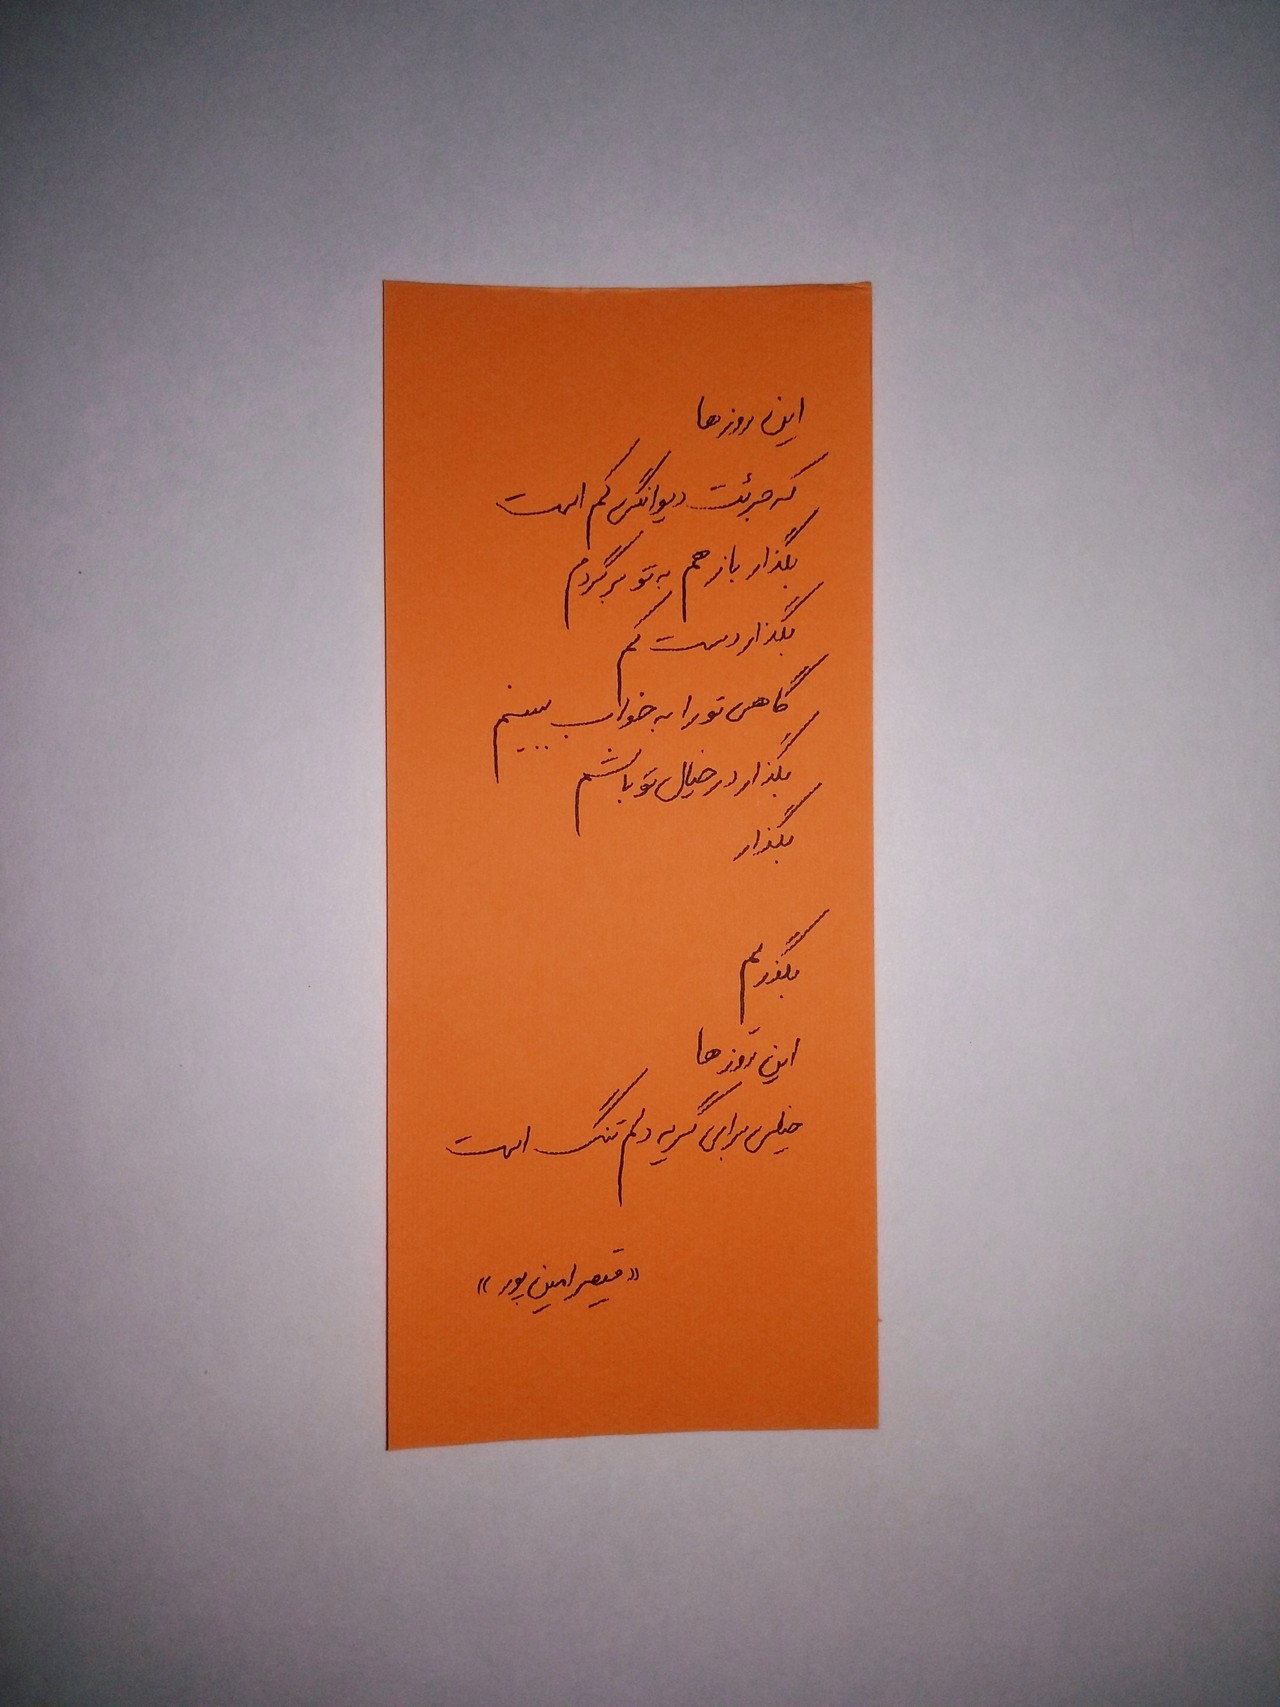 این روزها
که جرئت دیوانگی کم است
بگذار باز هم به تو برگردم
بگذار دست کم
گاهی تو را به خواب ببینم
بگذار در خیال تو باشم
بگذار
بگذریم
این روزها
خیلی برای گریه دلم تنگ است
«قیصر امین پور»